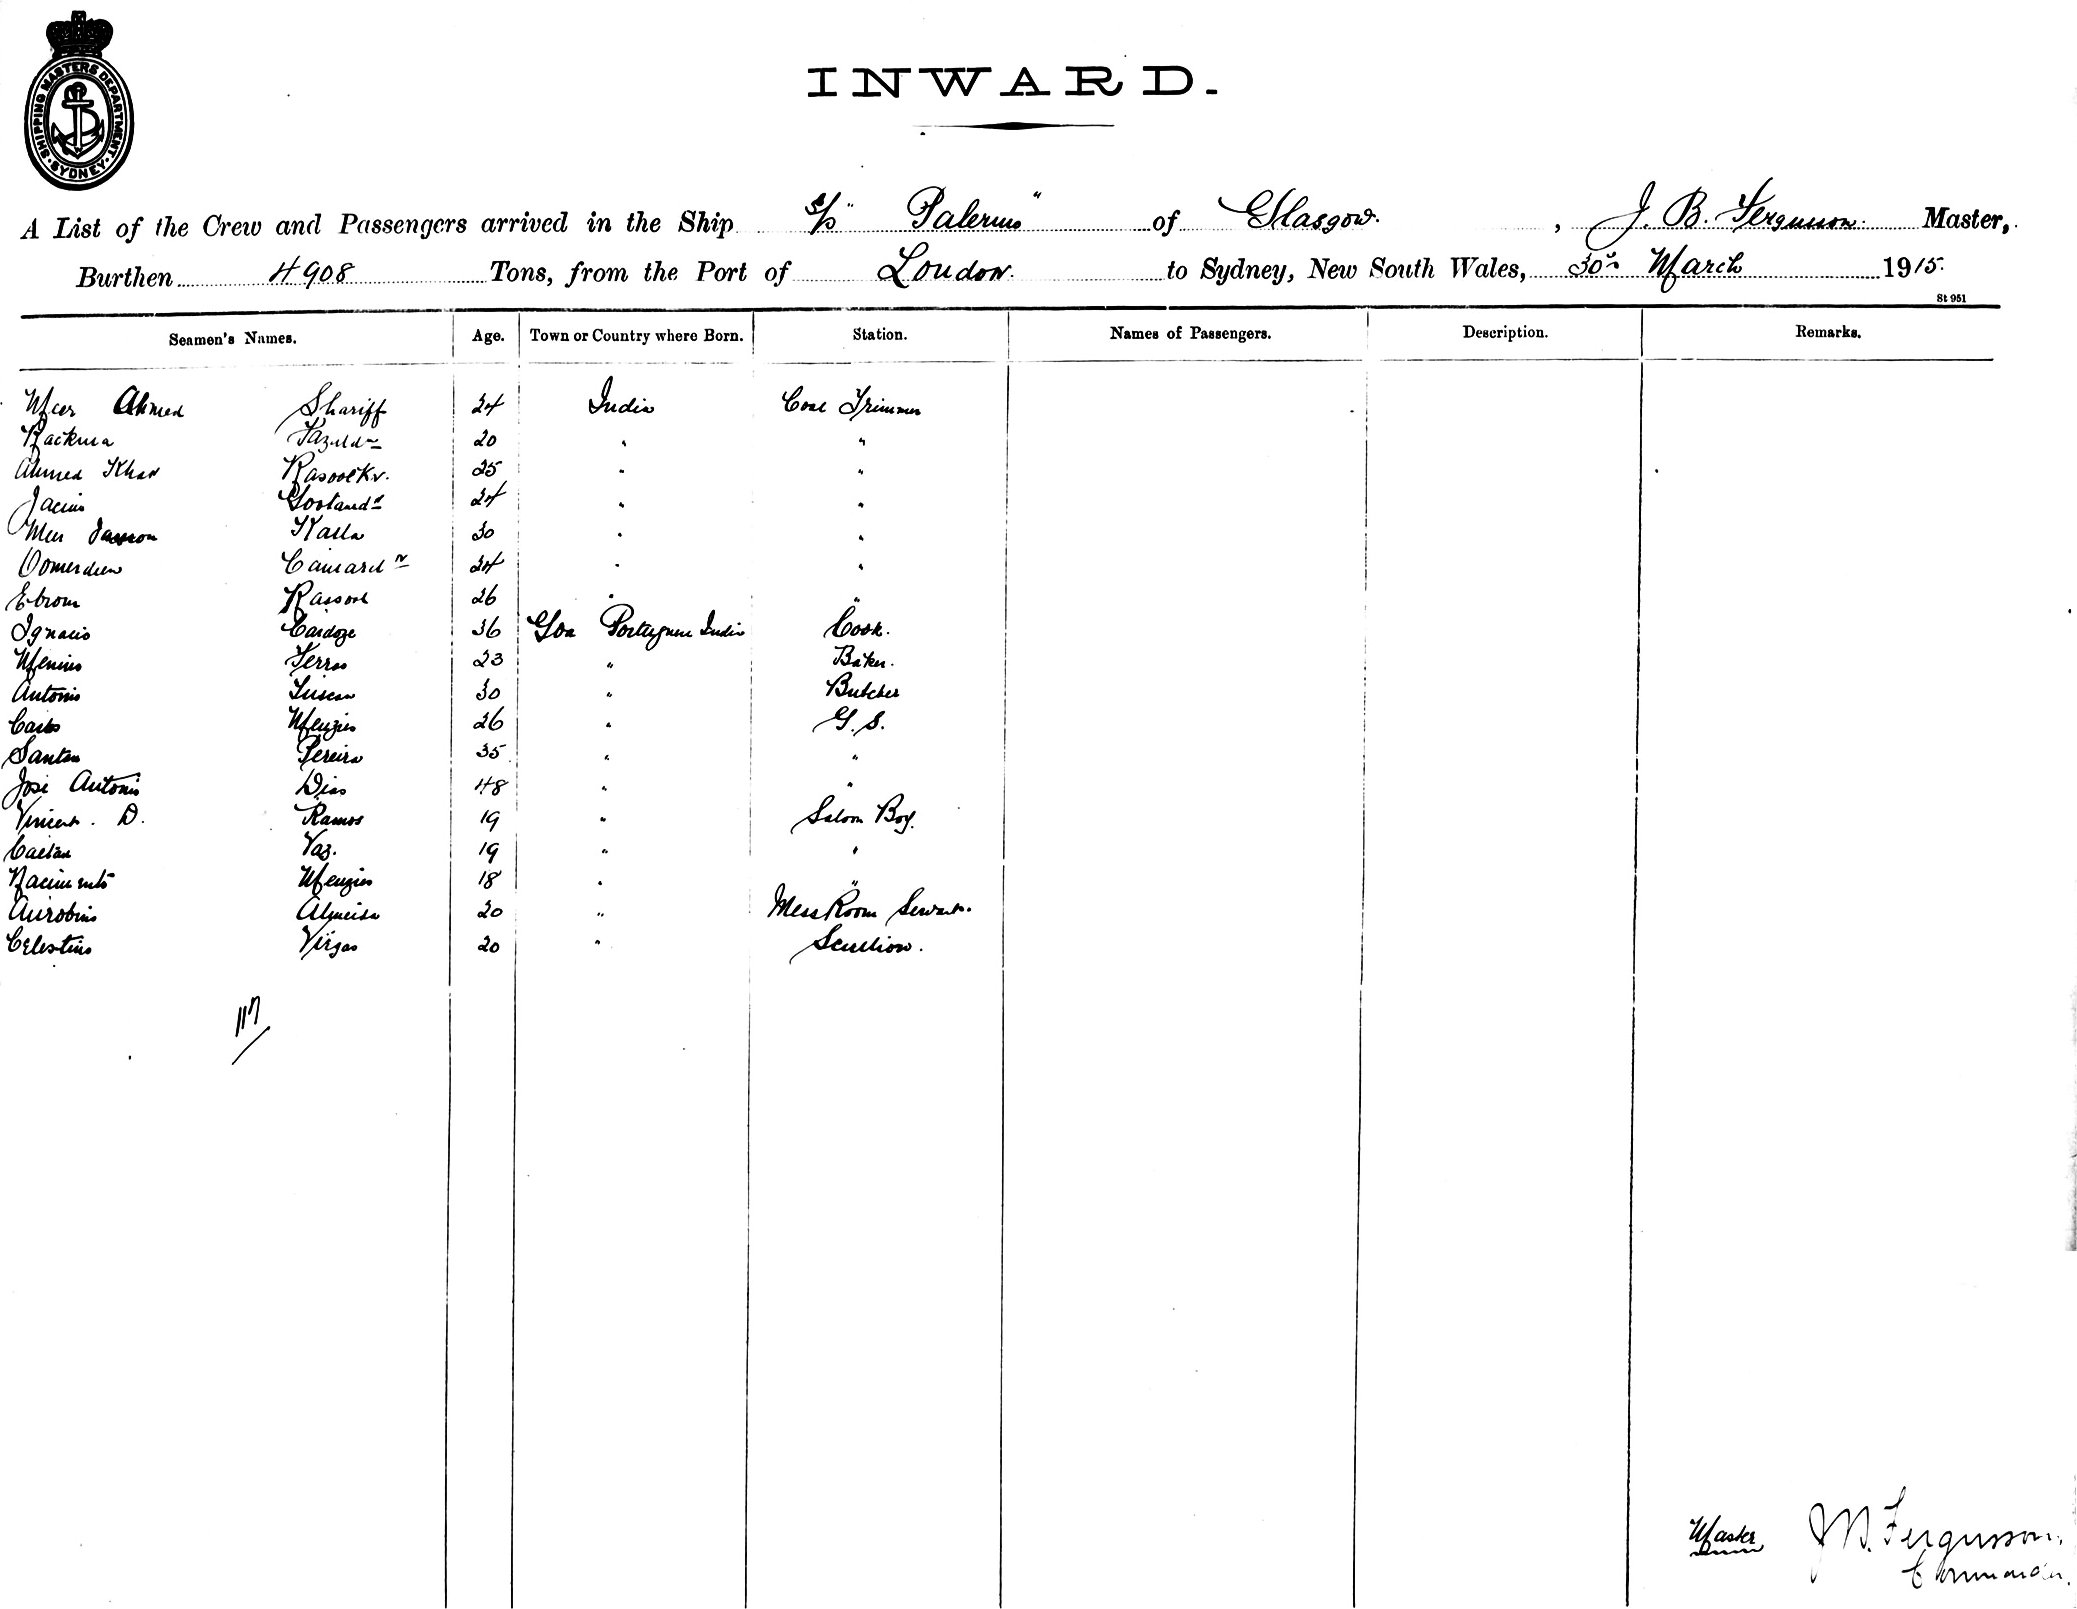 SHIPPING MASTERS DEPARTMENT · SYDNEY ·
INWARD.
A List of the Crew and Passengers arrived in the Ship S/S "Palermo" of Glasgow. , J. B. Fergusson. Master,
Burthen 4908 Tons, from the Port of London. to Sydney, New South Wales, 30th March 1915.
St 951
Seamen's Names. Age. Town or Country where Born. Station. Names of Passengers. Description. Remarks.
Meer Ahmed Shariff 24 India Coal Trimmer
Rackma 20 " "
Ahmed Khan Rasool Kn. 25 " "
24 " "
Meer Kalla 30 " "
Oomerdeen 24 " "
Ebrom Rassool 26 " "
Ignacio Cardoze 36 Goa Portuguese India Cook.
23 " Baker.
Antonio 30 " Butcher
Menzies 26 " G. S.
Santan Pereira 35 " "
José Antonio Dias 48 " "
Vincent. D. Ramos 19 " Saloon Boy.
Caetan Vaz. 19 " "
Nacimento Menzies 18 " "
Almeida 20 " Mess Room Servant.
Celestino 20 " Scullion.
117
Master J B. Fergusson.
Commander.